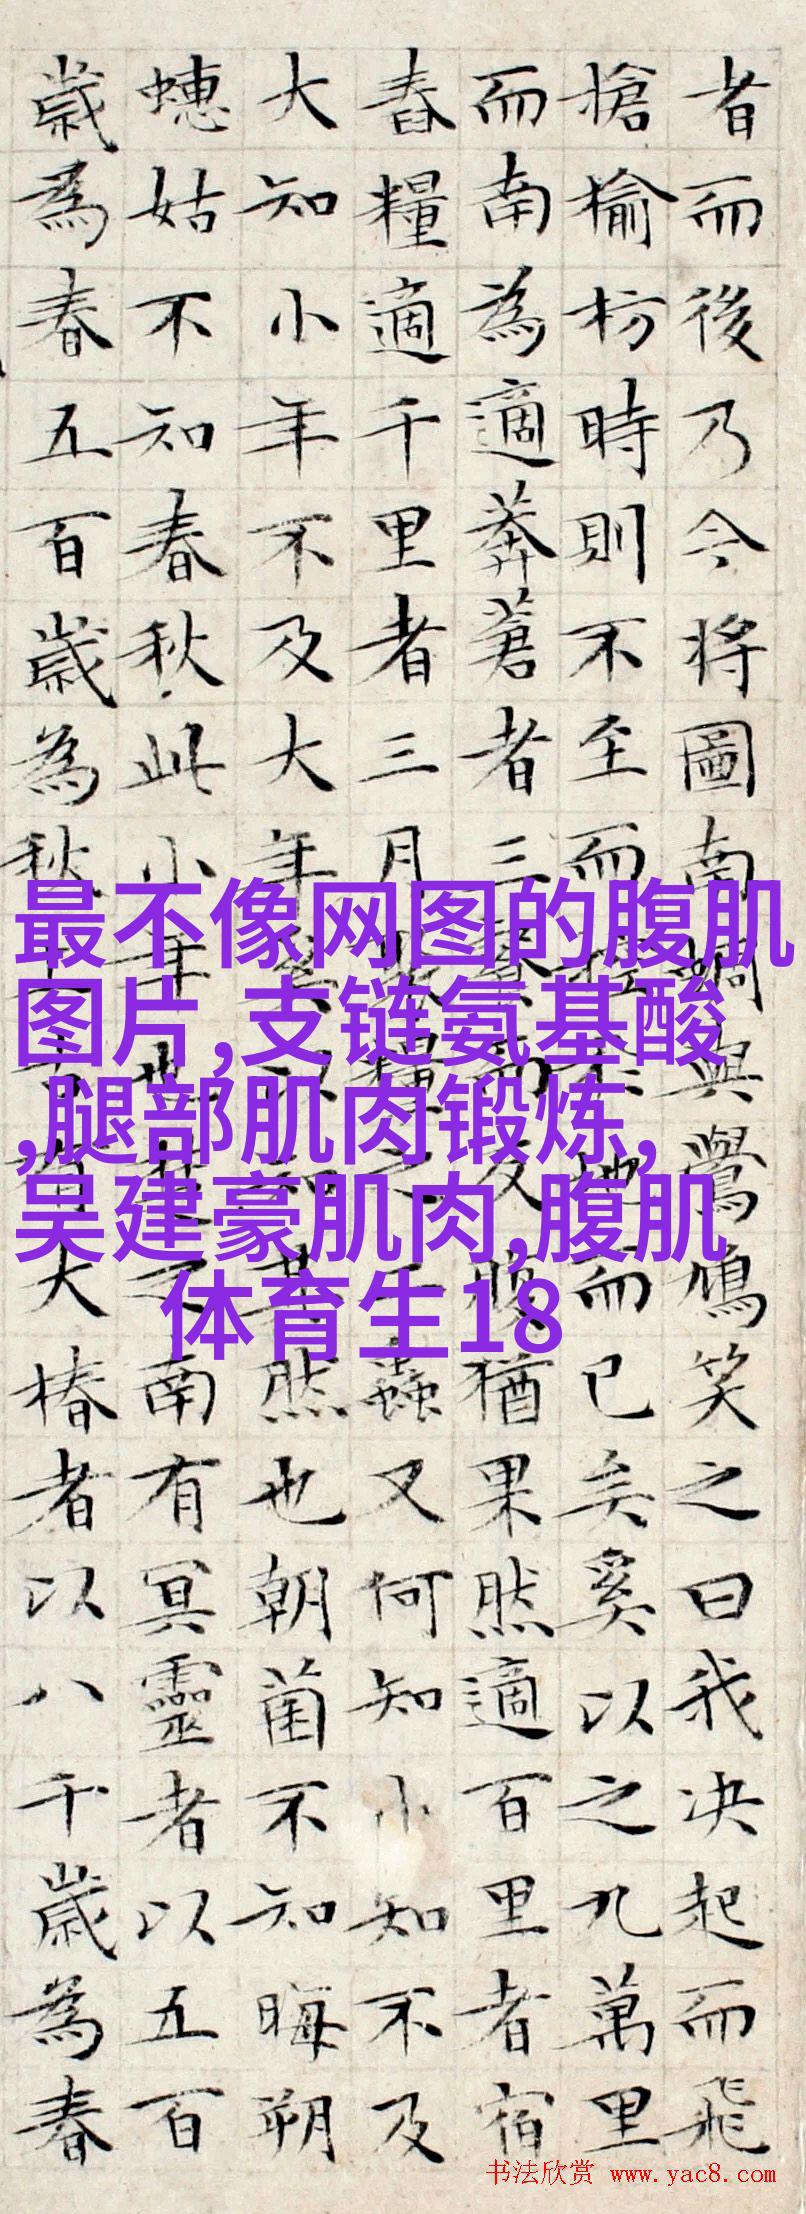 者而後乃今將圖南蜩與鷽鳩笑之曰我決起而飛
槍榆枋時則不至而控於地而已矣奚以之九萬里
而南為適莽蒼者三餐而反腹猶果然適百里者宿
舂糧適千里者三月聚糧之二蟲又何知小知不及
大知小年不及大年奚以知其然也朝菌不知晦朔
蟪姑不知春秋此小年也楚之南有冥靈者以五百
歲為春五百歲為秋上古有大椿者以八千歲為春
最不像网图的腹肌
图片,支链氨基酸
,腿部肌肉锻炼,
吴建豪肌肉,腹肌
体育生18
书法欣赏 www.yac8.com